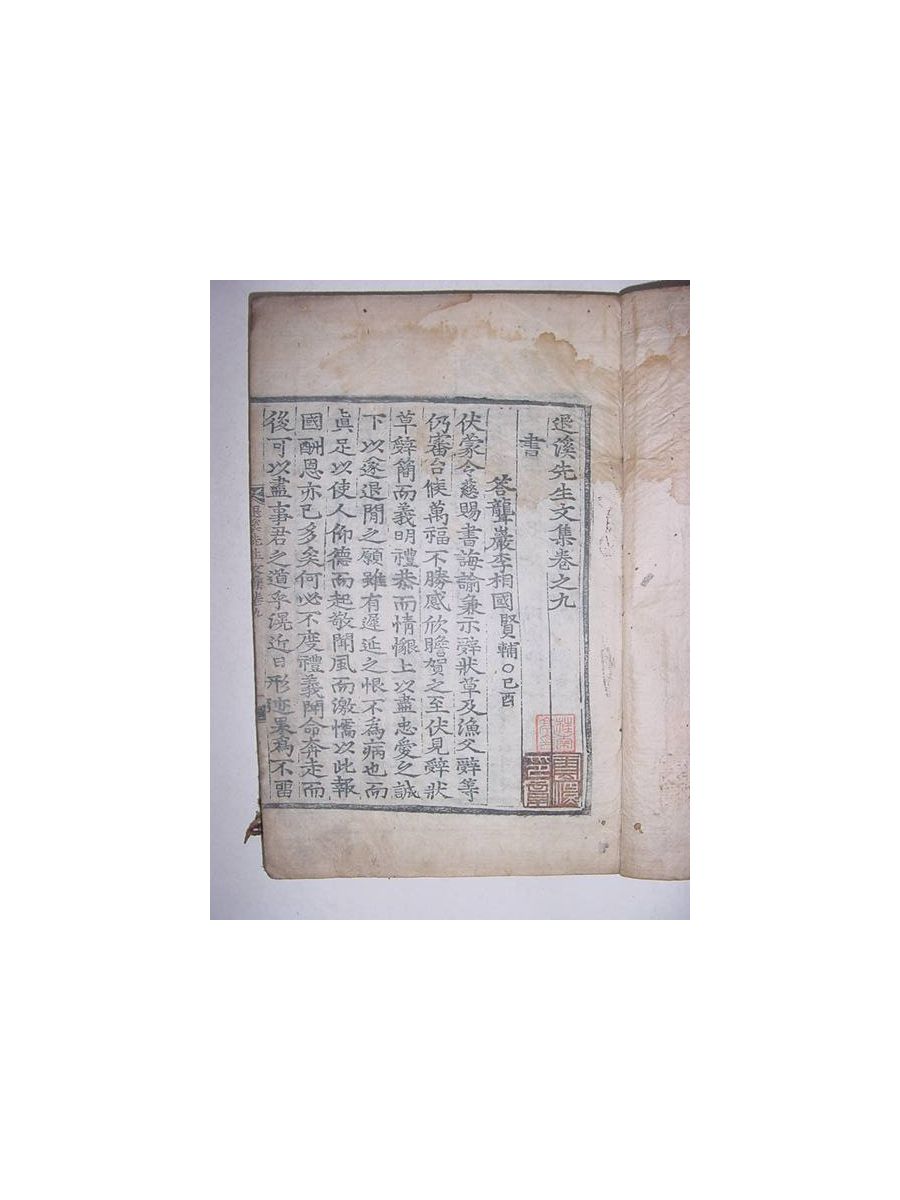 退溪先生文集卷之九
書
答聾巖李相國賢輔○己酉
伏蒙令慈賜書誨諭兼示辭狀草及漁父辭等
仍審台候萬福不勝感欣瞻賀之至伏見辭狀
草辭簡而義明禮恭而情懇上以盡忠愛之誠
下以遂退閒之願雖有遲延之恨不為病也而
眞足以使人仰德而起敬聞風而激懦以此報
國酬恩亦已多矣何必不度禮義聞命奔走而
後可以盡事君之道乎滉近日形迹果為不當
退溪先生文集卷九